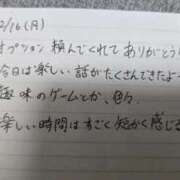 2/16(月)
オプション頼んでくれてありがとう
今日は楽しい話がたくさんできたよ
趣味のゲームとか、色々
楽しい時間はすごく短かく感じる